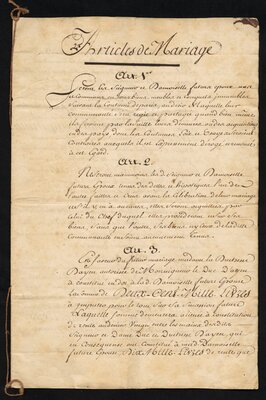 Articles de Mariage
Art. 1er
Seront les Seigneur et Damoiselle futurs époux uns
et communs en tous biens meubles et conquets immeubles
suivant la Coutume de paris, au desir de laquelle leur
communauté sera regie et partagée quand bien même
ils feroient par la suite leur demeure ou des acquisitions
en des pays dont les Coutumes Loix et Usages seroient
Contraires auxquels il est expressement derogé et renoncé
à cet egard.
Art. 2.
Ne seront néanmoins lesd. Seigneur et Damoiselle
futurs Epoux tenus des dettes et hipoteques l'un de
l'autre faites et Créés avant la Célébration de leur mariage
et s'il y en a aucunes, elles seront acquittées par
celui du Chef duquel elles procederont et sur ses
biens, sans que l'autre, ses biens, ny ceux de ladite
Communauté en soient aucunement tenus.
Art. 3.
En faveur du futur mariage, madame la Duchesse
Dayen autorisée de Monseigneur le Duc D'ayen
a constitué en dot à lad. Damoiselle future Epouse
la somme de Deux Cens Mille Livres
à imputer pour le tout sur sa Succession future
Laquelle somme demeurera alienée à constitution
de rente au denier Vingt entre les mains desdits
Seigneur et Dame Duc et Duchesse Dayen, qui
en Conséquence ont Constitué à mad. Damoiselle
future Epouse, Dix Mille Livres de rente que